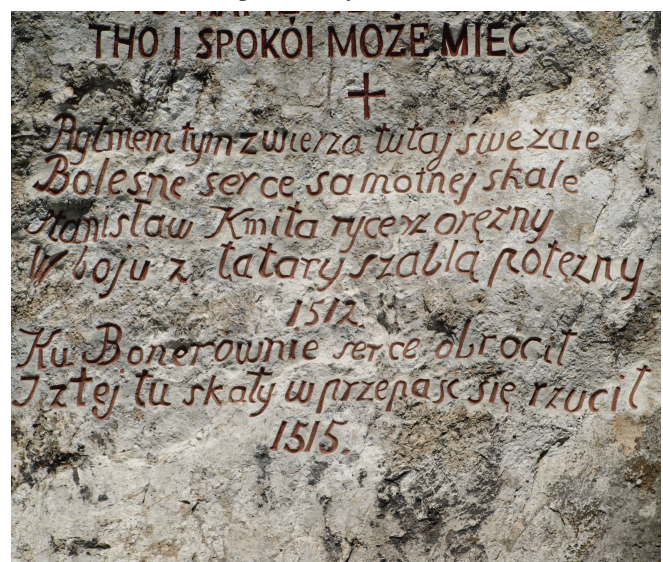 THO I SPOKÓI MOŻE MIEC
Rytmem tym zwierza tutaj swe zale
Bolesne serce samotnej skale
Stanisław Kmita rycerz orężny
W boju z tatary szablą potężny
1512.
Ku Bonerownie serce obrocił
I z tej tu skały w przepaśc się rzucił
1515.